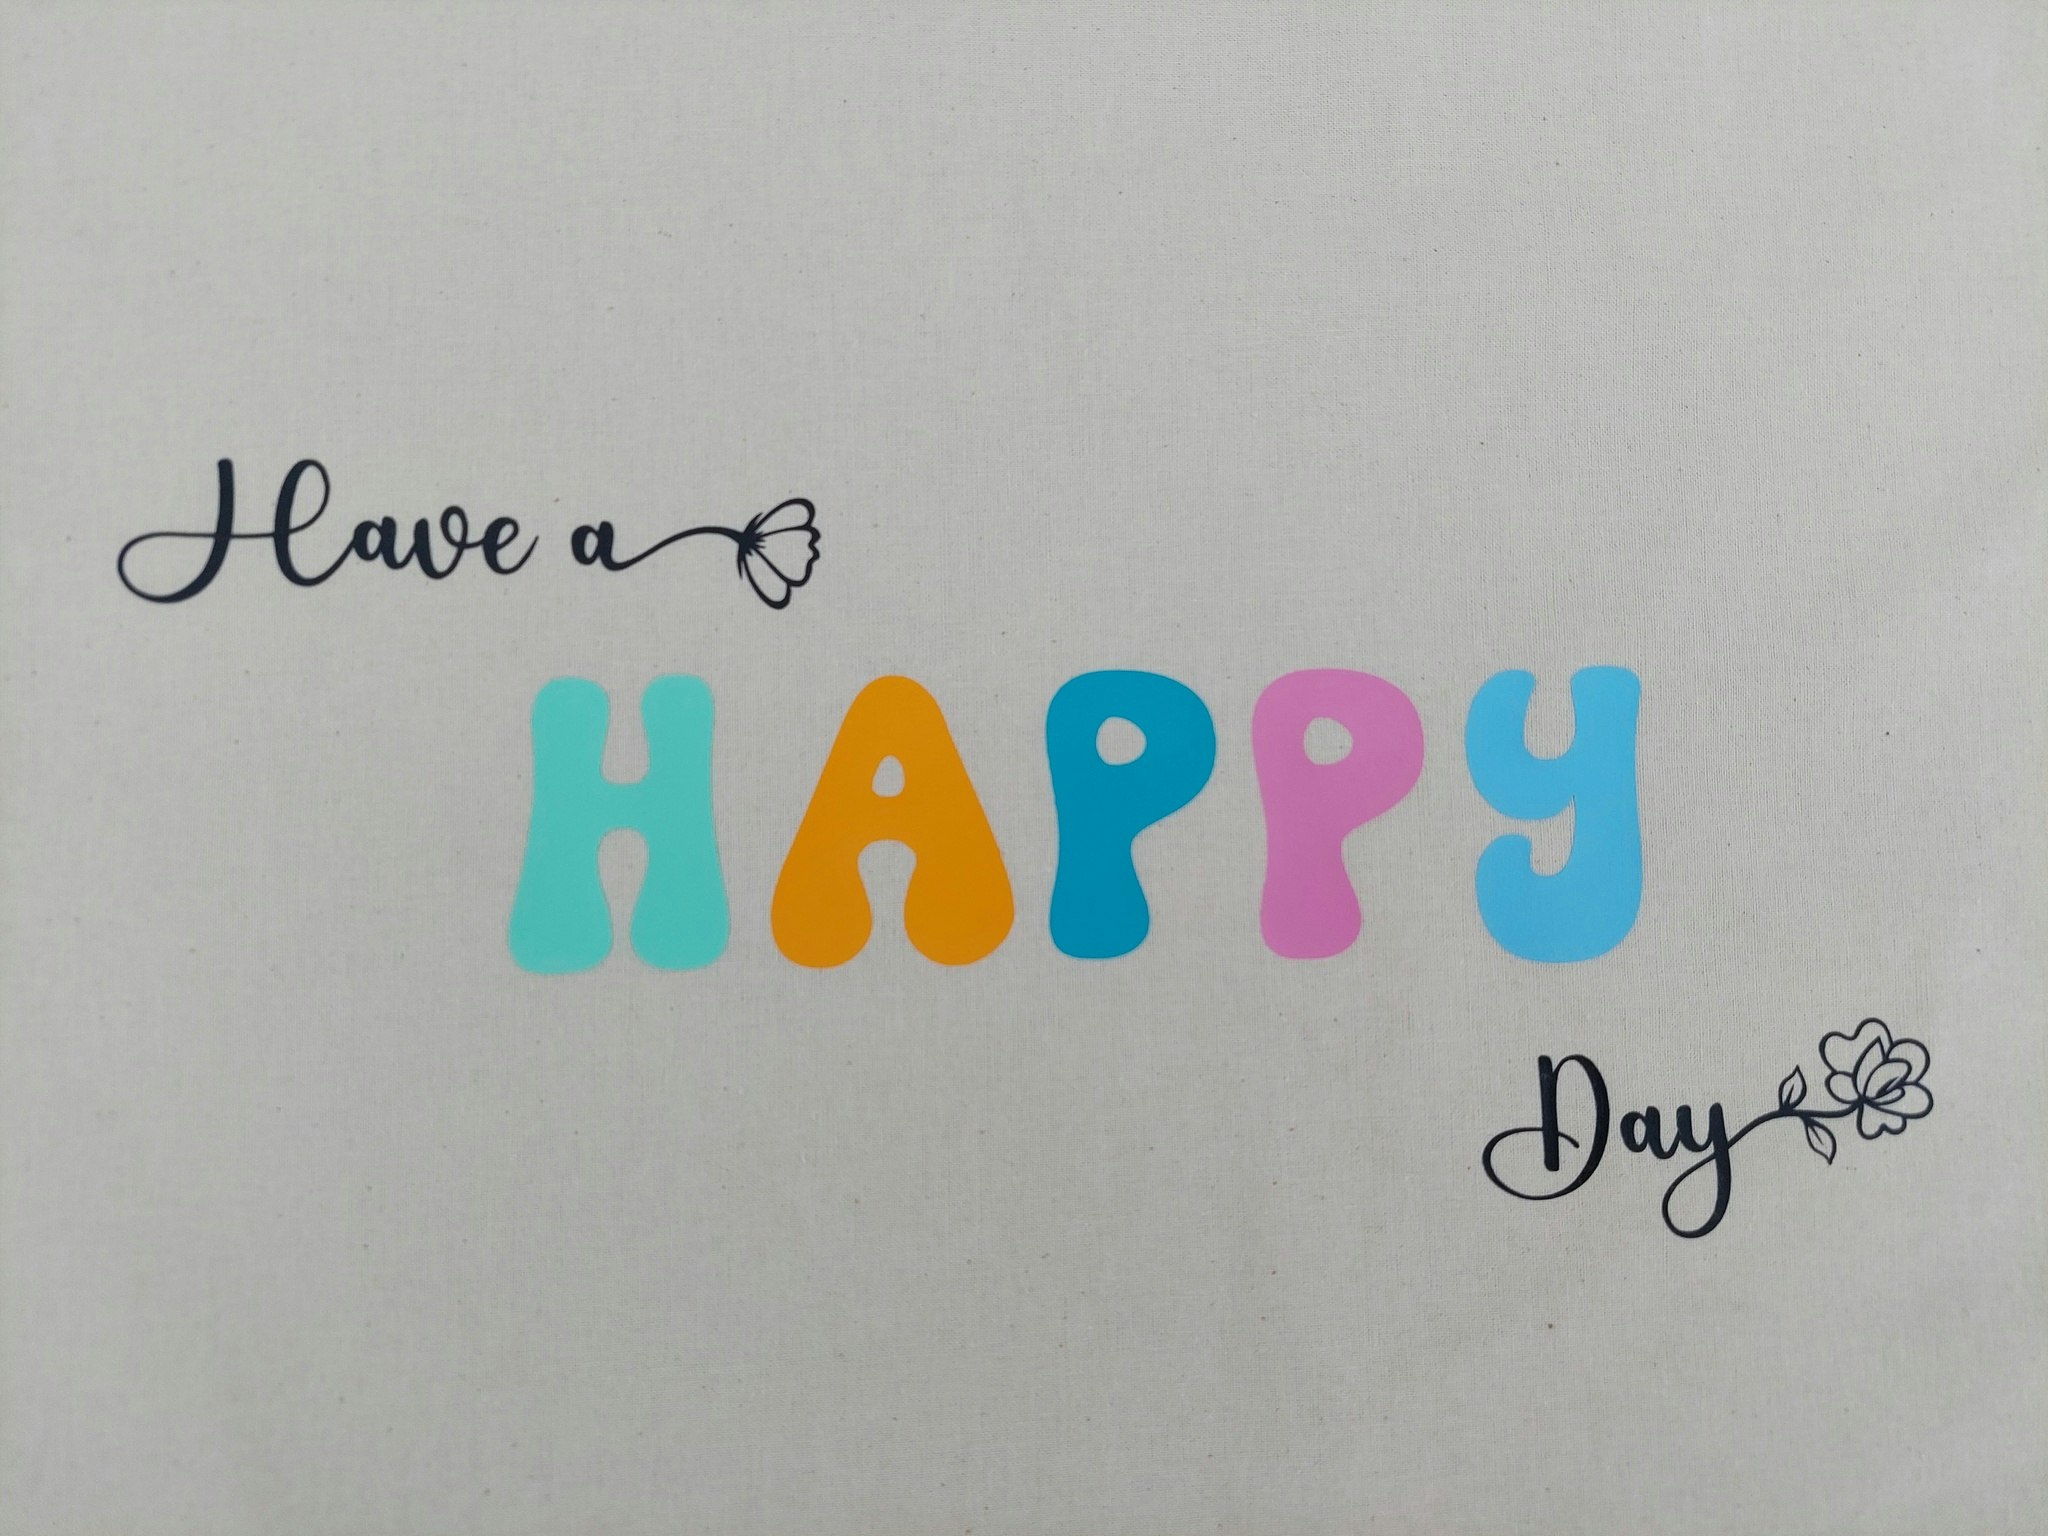 Have a
HAPPY
Day